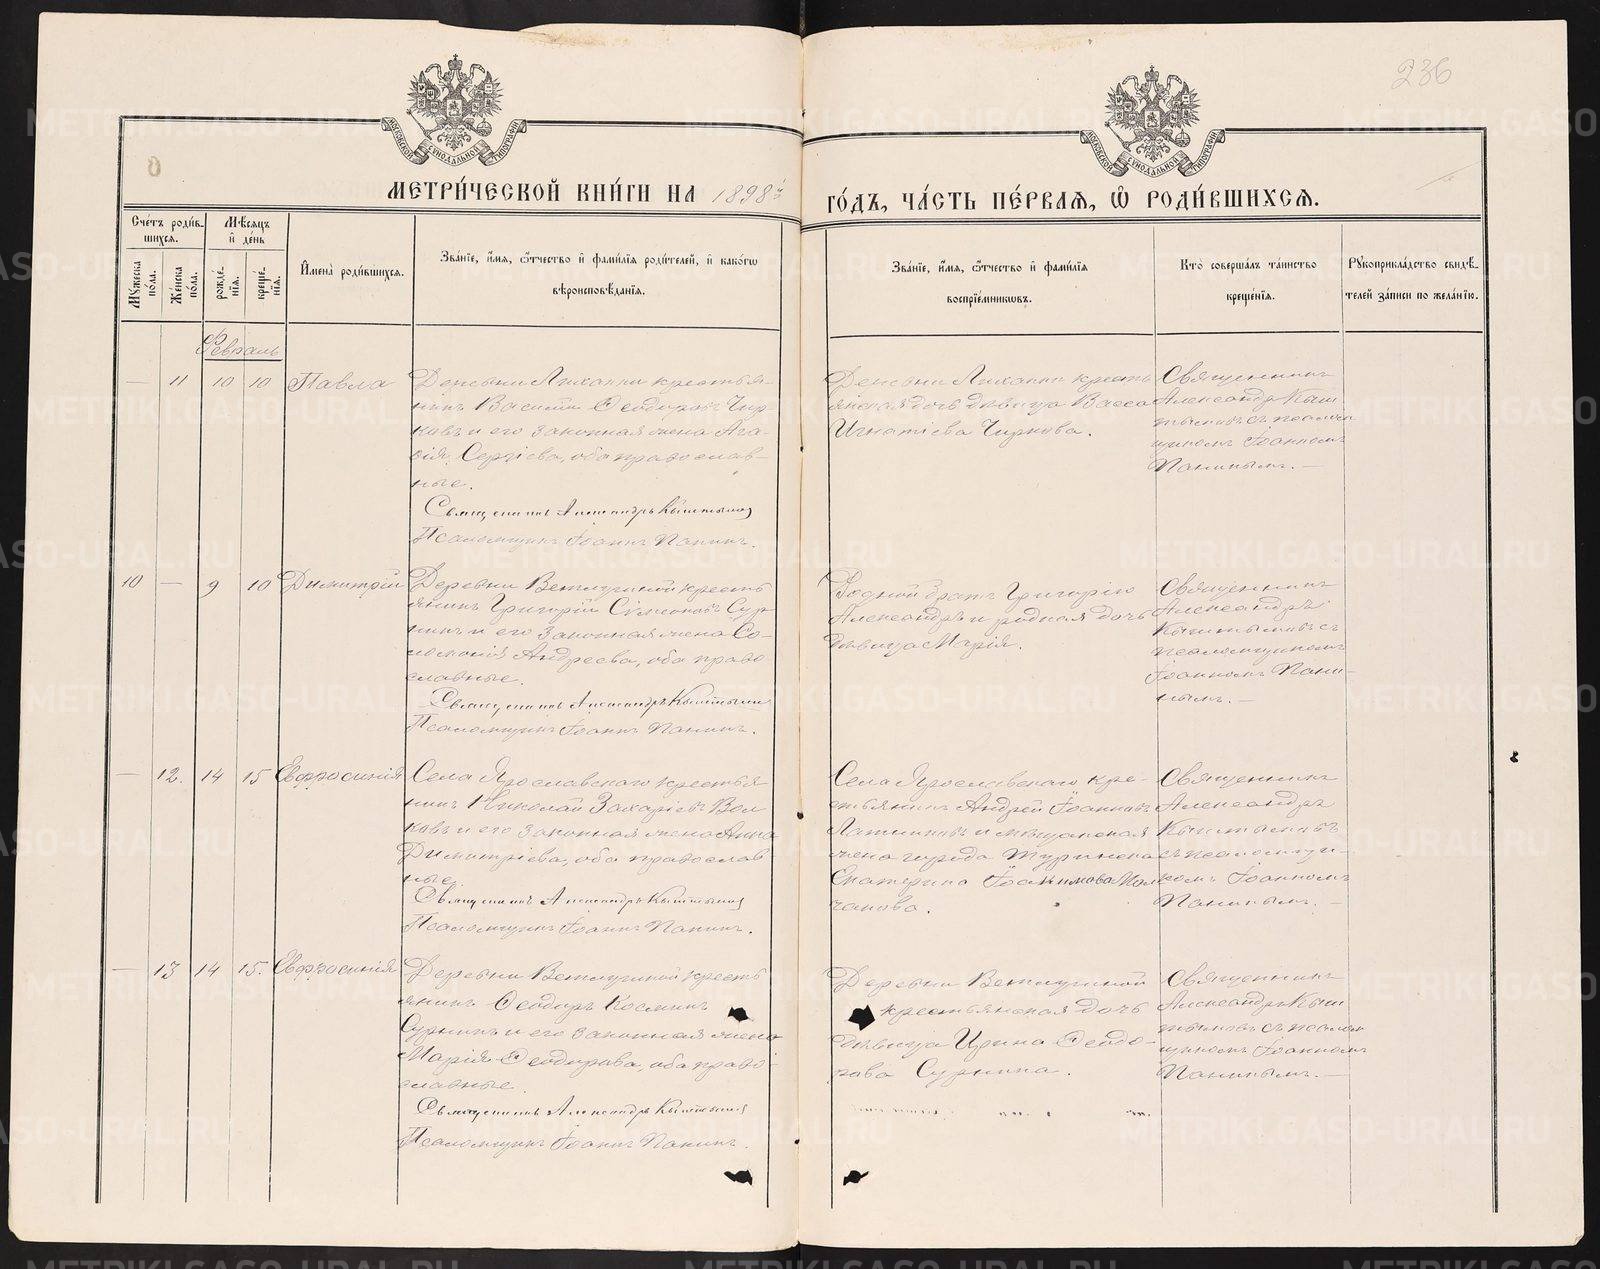 236
МЕТРИ́ЧЕСКОЙ КНИ́ГИ НА 1898й
ГО́ДЪ, ЧА́СТЬ ПЕ́РВАѦ, Ѿ РОДИ́ВШИХСѦ.
Сче́тъ роди́в-
шихсѧ.
Му́жеска по́ла.
Же́нска по́ла.
Мѣ́сѧцъ
и҆ де́нь
рожде́-
нїѧ.
креще́-
нїѧ.
И҆мена̀ роди́вшихсѧ.
Зва́нїе, и҆́мѧ, ѻ҆́тчество и҆ фами́лїѧ роди́телей, и҆ како́гѡ
вѣроисповѣ́данїѧ.
Зва́нїе, и҆́мѧ, ѻ҆́тчество и҆ фами́лїѧ
воспрїе́мникѡвъ.
Кто̀ соверша́лъ та́инство
креще́нїѧ.
Рꙋкоприкла́дство свидѣ́-
телей за́писи по жела́нїю.
Февраль
— 11 10 10 Павла
Деревни Лихачи крестья-
нинъ Василій Ѳеодоровъ Чир-
ковъ и его законная жена Ага-
ѳія Сергіева, оба православ-
ные.
Священникъ Александръ Кыштымовъ
Псаломщикъ Іоаннъ Панинъ.
Деревни Лихачи кресть
янская дочь дѣвица Васса
Игнатіева Чиркова.
Священникъ
Александръ Кыш
тымовъ съ псалом
щикомъ Іоанномъ
Панинымъ. —
10 — 9 10 Димитрій
Деревни Ветлугиной кресть
янинъ Григорій Сѵмеоновъ Сур
нинъ и его законная жена Со-
ломонія Андреева, оба право
славные.
Священникъ Александръ Кыштымовъ
Псаломщикъ Іоаннъ Панинъ.
Родной братъ Григорію
Александръ и родная дочь
дѣвица Марія.
Священникъ
Александръ
Кыштымовъ съ
псаломщикомъ
Іоанномъ Пани-
нымъ. —
— 12. 14 15 Евфросинія
Села Ярославскаго крестья
нинъ Николай Захаріевъ Вол
ковъ и его законная жена Анна
Димитріева, оба православ
ные.
Священникъ Александръ Кыштымовъ
Псаломщикъ Іоаннъ Панинъ.
Села Ярославскаго кре-
стьянинъ Андрей Іоанновъ
и мѣщанская
жена города Туринска
Екатерина Іоакимова Мол
чанова.
Священникъ
Александръ
Кыштымовъ
съ псаломщи-
комъ Іоанномъ
Панинымъ. —
— 13 14 15. Евфросинія
Деревни Ветлугиной кресть
янинъ Ѳеодоръ Косминъ
Сурнинъ и его законная жена
Марія Ѳеодорова, оба право-
славные.
Священникъ Александръ Кыштымовъ
Псаломщикъ Іоаннъ Панинъ.
Деревни Ветлугиной
крестьянская дочь
дѣвица Ирина Ѳеодо-
рова Сурнина.
Священникъ
Александръ Кыш
тымовъ съ псалом
щикомъ Іоанномъ
Панинымъ. —
METRIKI.GASO-URAL.RU